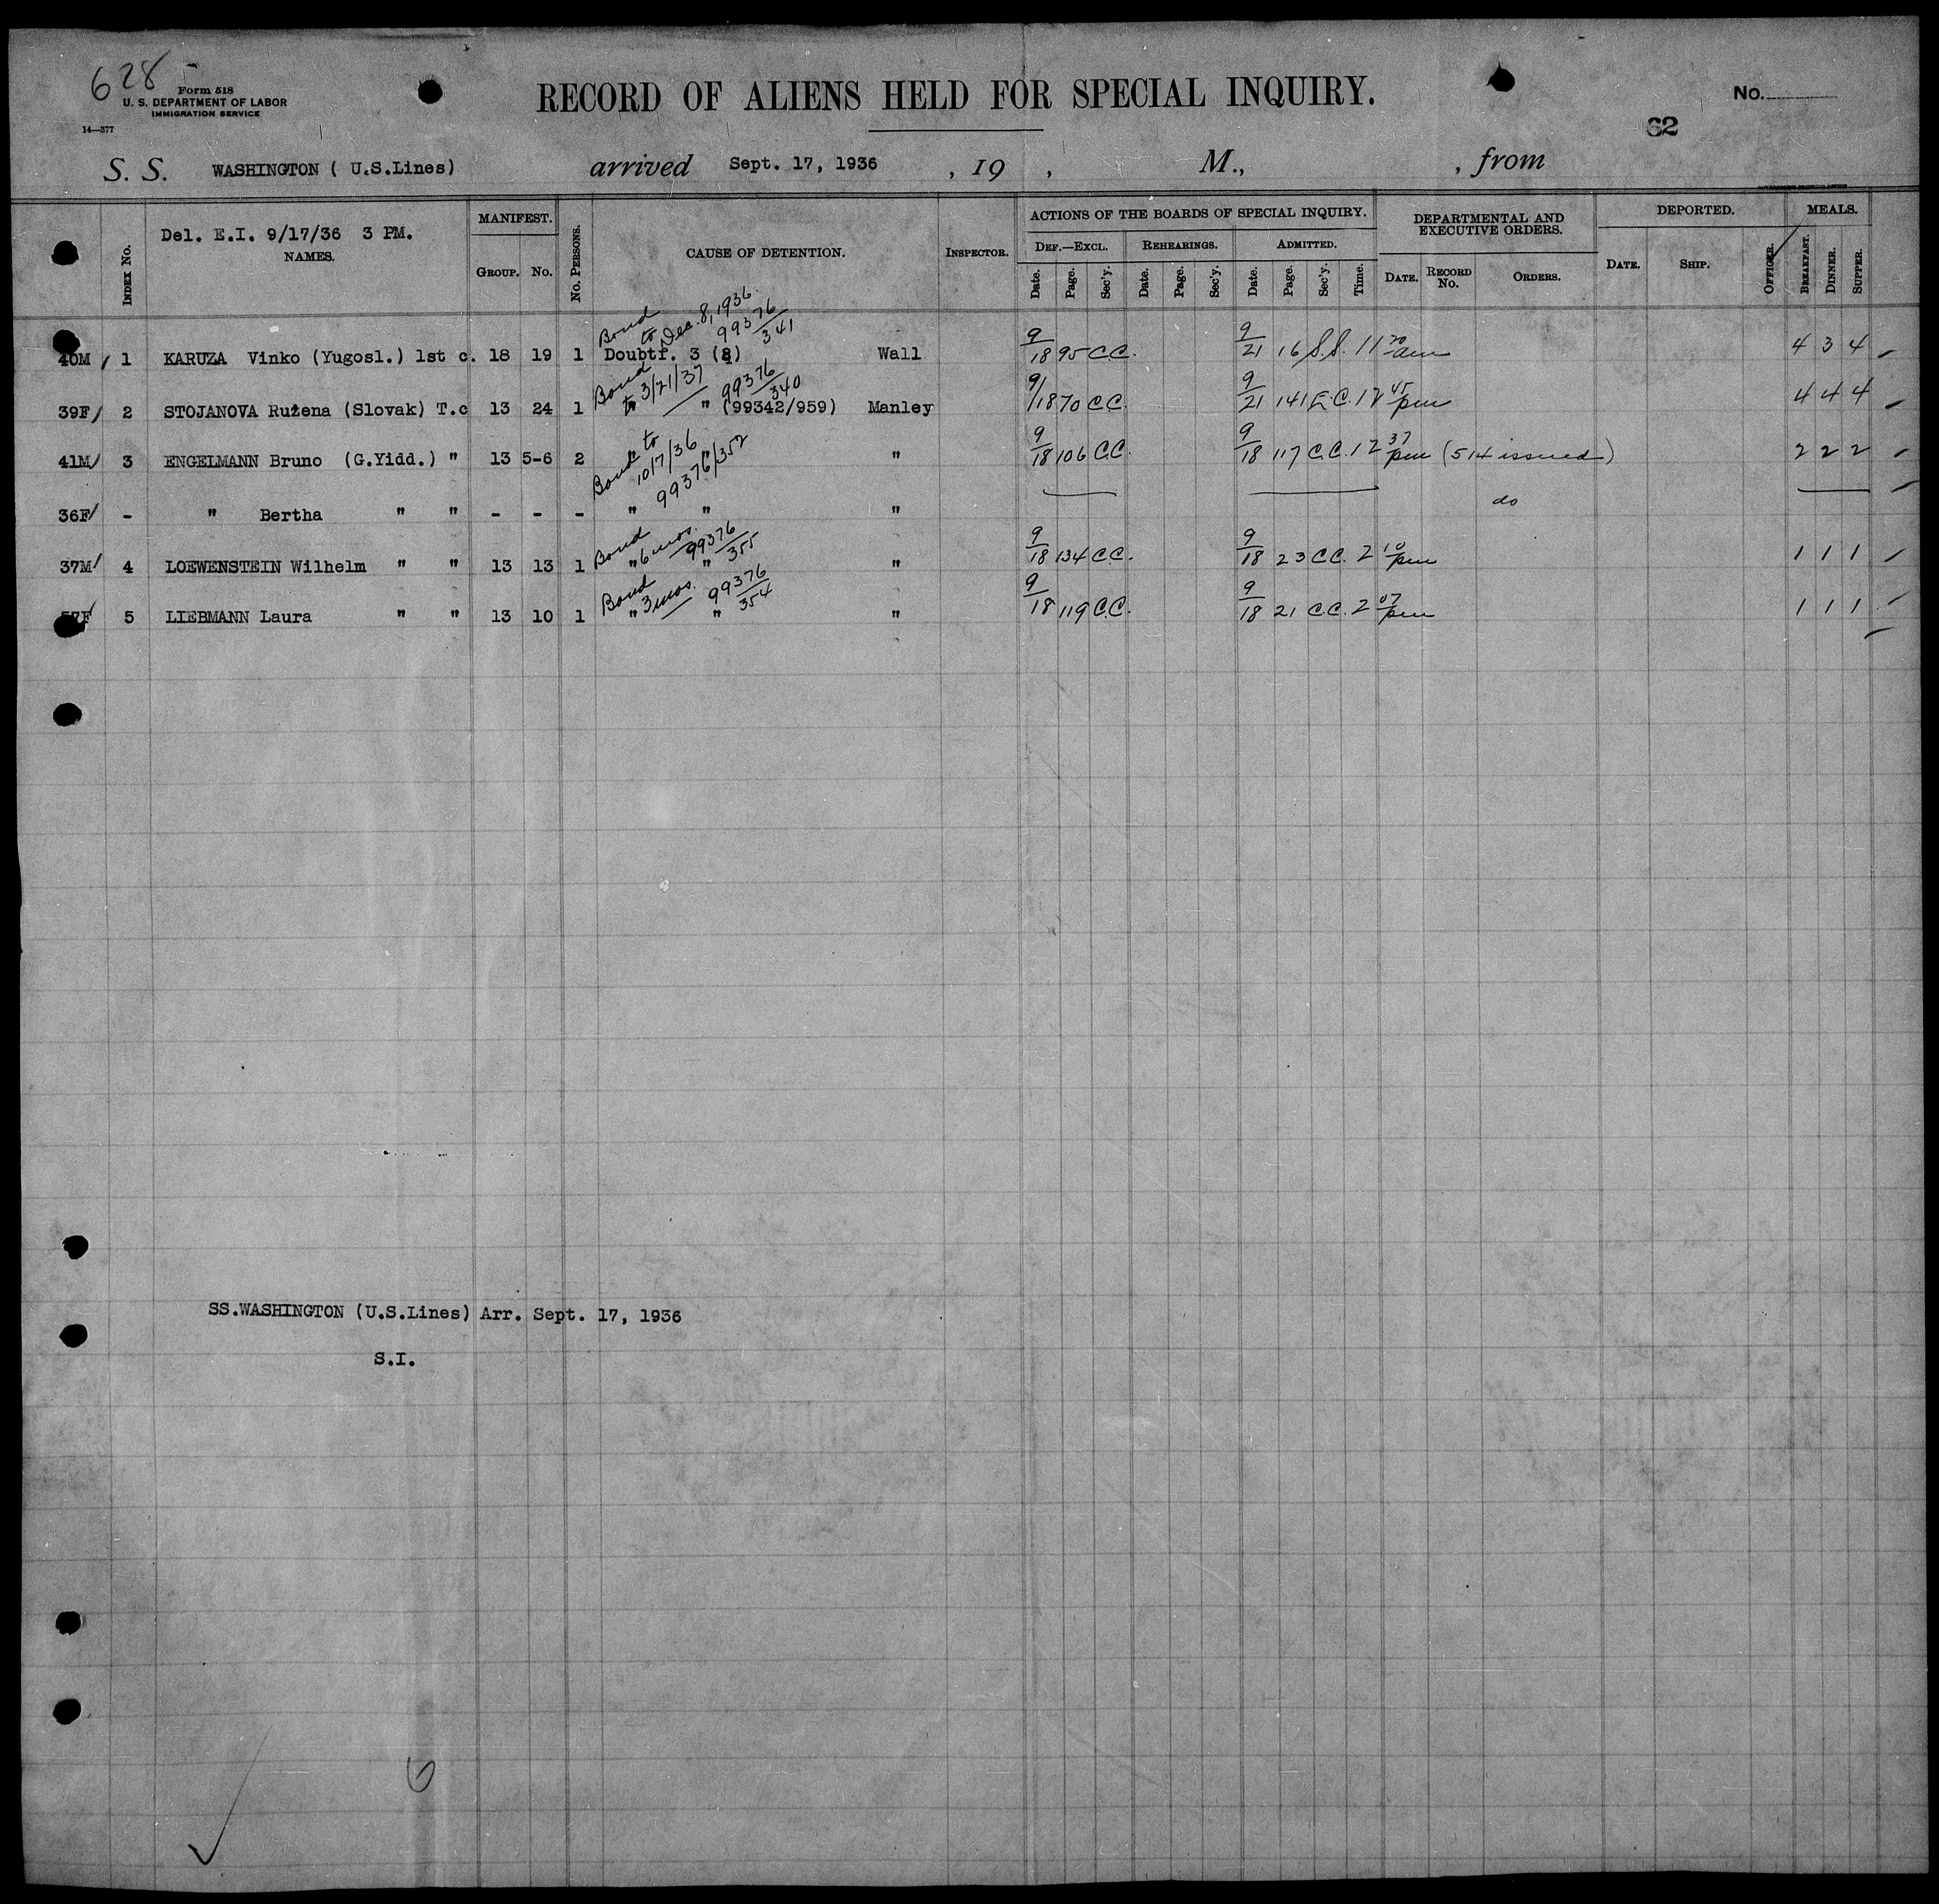 628
Form 518
U. S. DEPARTMENT OF LABOR
IMMIGRATION SERVICE
14—377
RECORD OF ALIENS HELD FOR SPECIAL INQUIRY.
No.
62
S. S. WASHINGTON ( U.S.Lines) arrived Sept. 17, 1936 , 19 , M., , from
Del. E.I. 9/17/36 3 PM.
INDEX No. NAMES. MANIFEST. GROUP. No. No. PERSONS. CAUSE OF DETENTION. INSPECTOR.
ACTIONS OF THE BOARDS OF SPECIAL INQUIRY.
DEF.—EXCL. REHEARINGS. ADMITTED.
Date. Page. Sec'y. Date. Page. Sec'y. Date. Page. Sec'y. Time.
DEPARTMENTAL AND EXECUTIVE ORDERS.
DATE. RECORD No. ORDERS.
DEPORTED.
DATE. SHIP. OFFICER.
MEALS.
BREAKFAST. DINNER. SUPPER.
Bond to Dec. 8, 1936. 99376/341
40M / 1 KARUZA Vinko (Yugosl.) 1st c. 18 19 1 Doubtf. 3 (8) Wall 9/18 95 C.C. 9/21 16 S.S. 11 20 am 4 3 4
Bond to 3/21/37 99376/340
39F/ 2 STOJANOVA Ružena (Slovak) T.c 13 24 1 " (99342/959) Manley 9/18 70 C.C. 9/21 141 E.C. 12 45 pm 4 4 4
Bond to 10/7/36 99376/352
41M/ 3 ENGELMANN Bruno (G.Yidd.) " 13 5-6 2 " " " 9/18 106 C.C. 9/18 117 C.C. 12 37 pm (514 issued) 2 2 2
36F/ - " Bertha " " - - - " " " do
Bond 6 mos. 99376/355
37M/ 4 LOEWENSTEIN Wilhelm " " 13 13 1 " " " 9/18 134 C.C. 9/18 23 C.C. 2 10 pm 1 1 1
Bond 3 mos. 99376/354
57F/ 5 LIEBMANN Laura " " 13 10 1 " " " 9/18 119 C.C. 9/18 21 C.C. 2 07 pm 1 1 1
SS.WASHINGTON (U.S.Lines) Arr. Sept. 17, 1936
S.I.
6